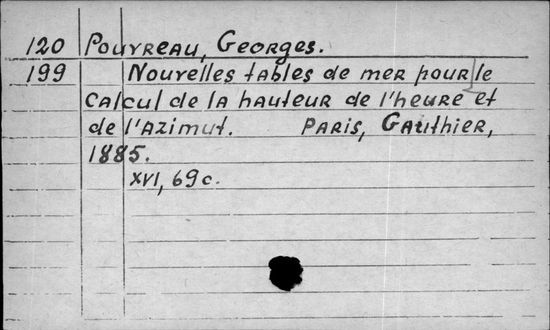 120 Pouvreau, Georges.
199 Nouvelles tables de mer pour le
calcul de la hauteur de l'heure et
de l'azimut. Paris, Gauthier,
1885.
XVI, 69 c.